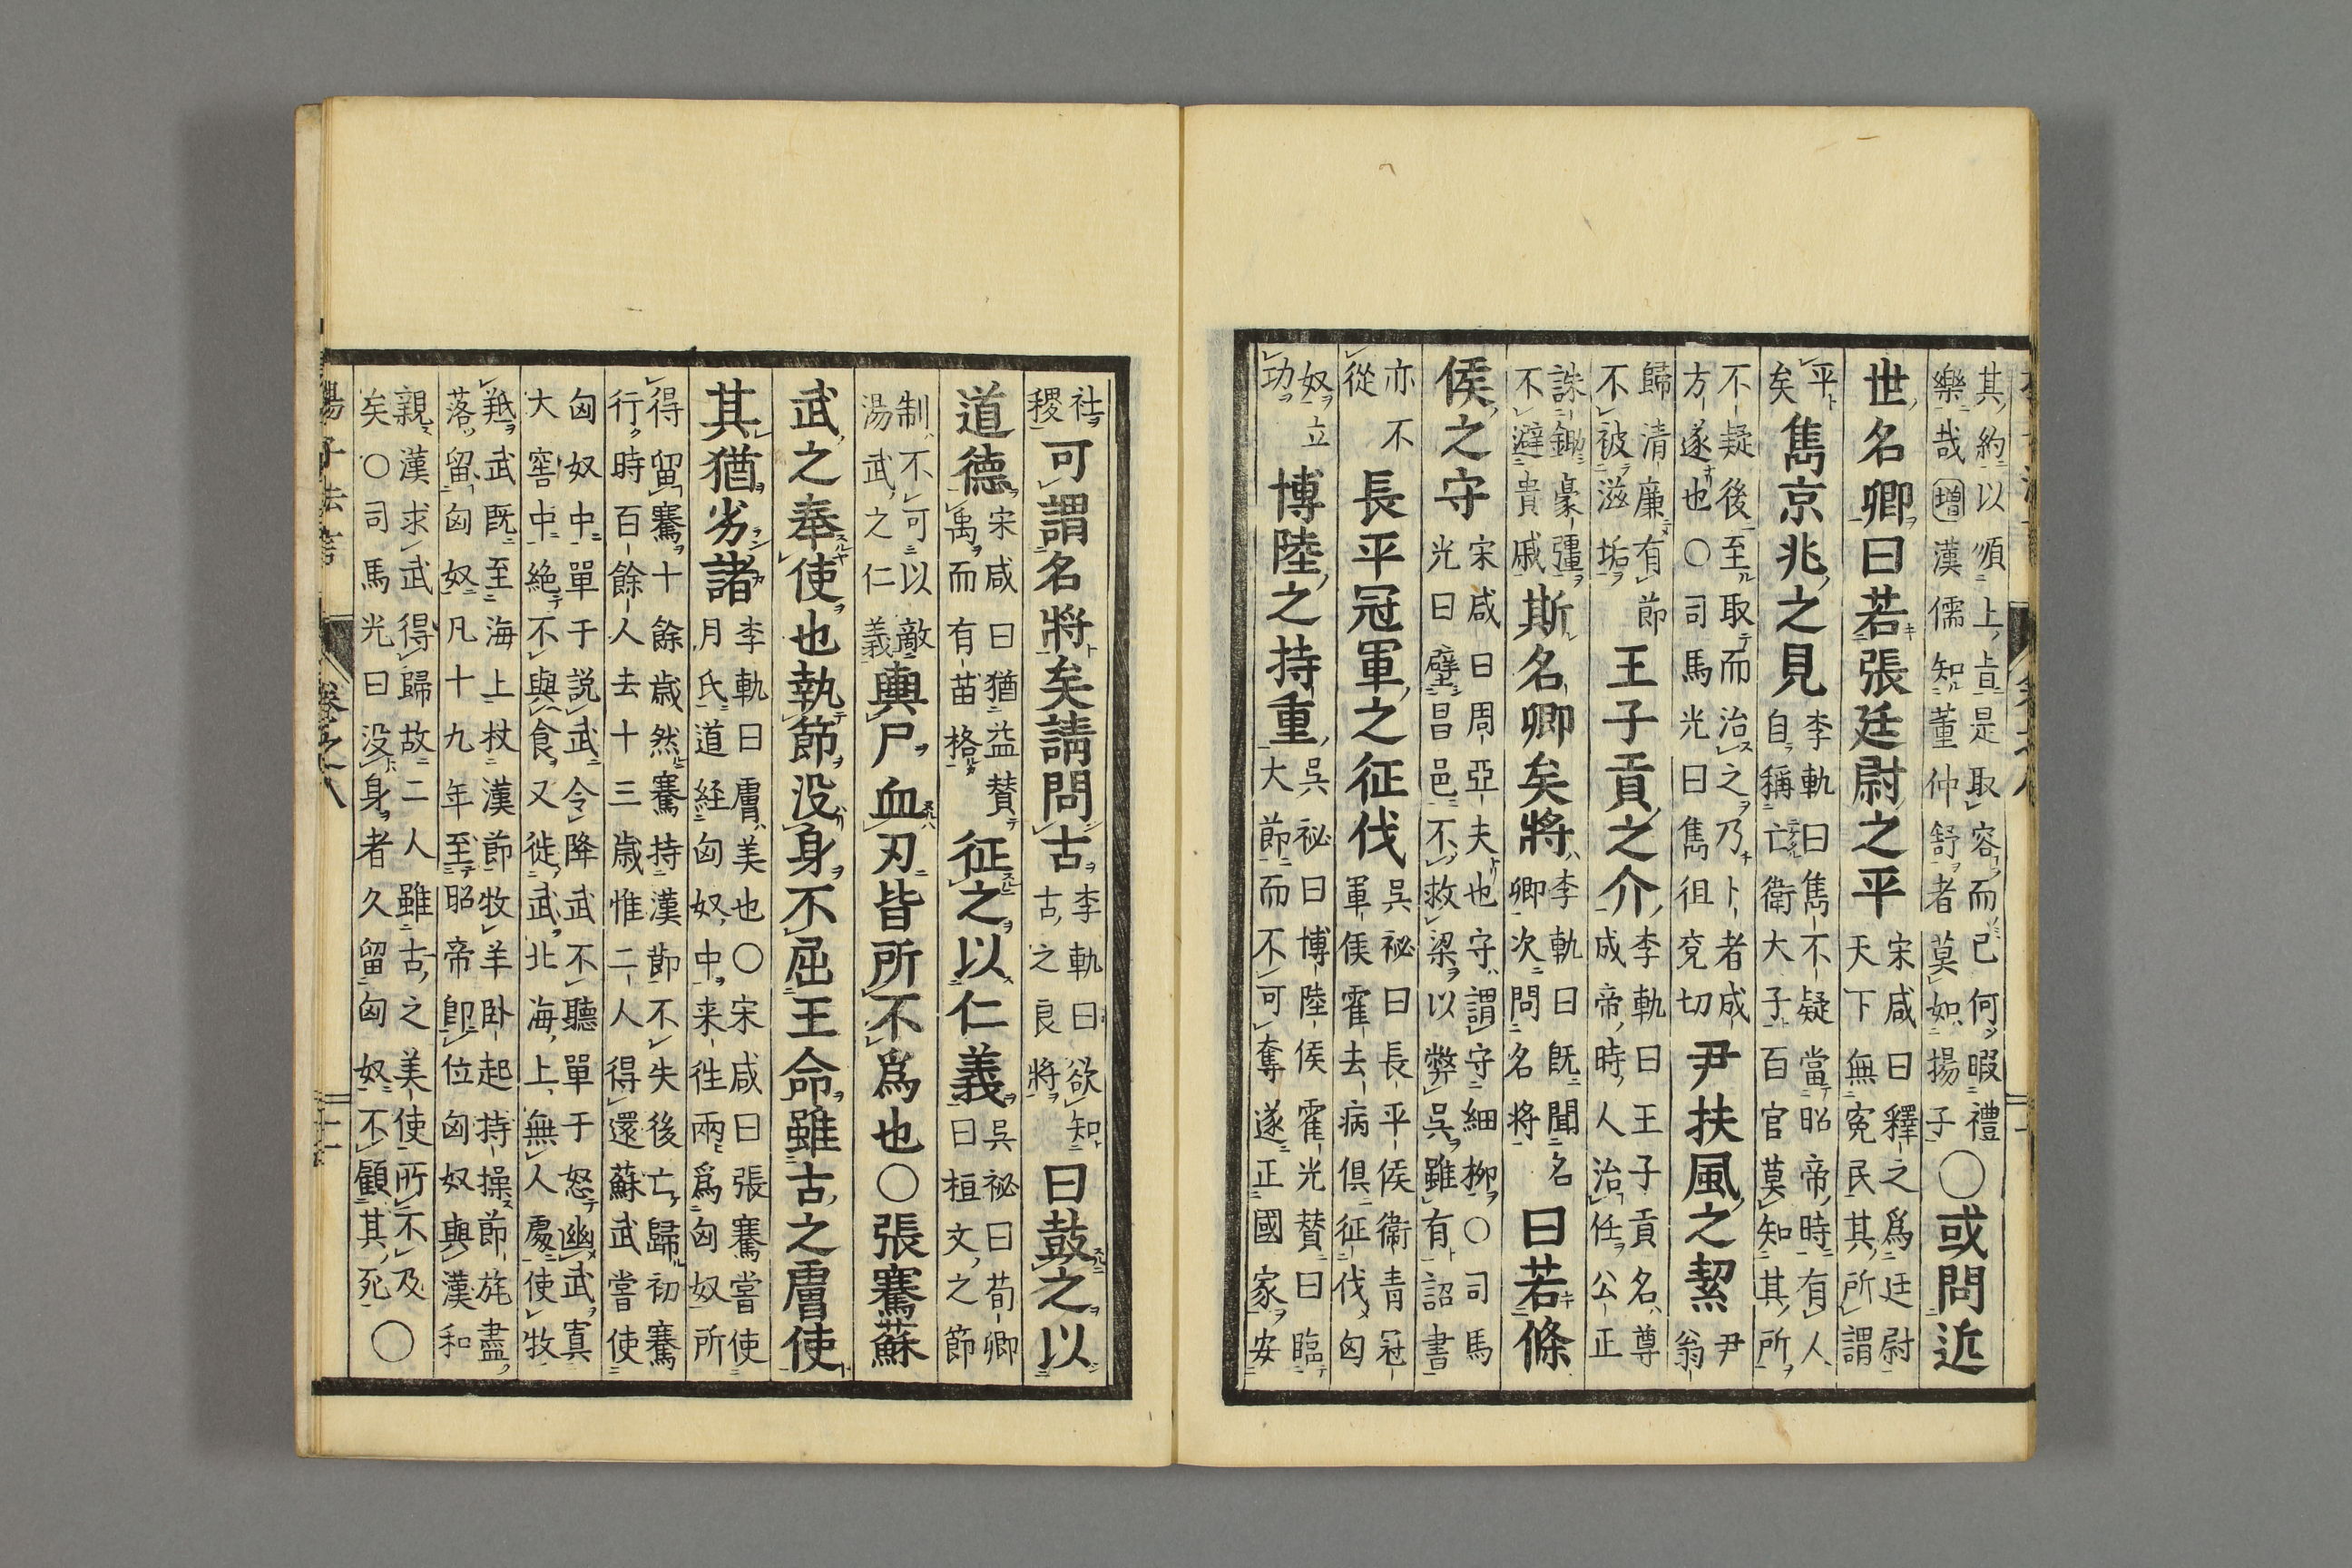 其約以順上直是取容而已何暇禮
樂哉 増 漢儒知董仲舒者莫如揚子
○或問近
世名卿曰若張廷尉之平
宋咸曰釋之爲廷尉
天下無冤民其所謂
平
矣
雋京兆之見
李軌曰雋不疑當昭帝時有人
自稱亡衛大子百官莫知其所
不疑後至取而治之乃卜者成
方遂也○司馬光曰雋徂兗切
尹扶風之絜
尹
翁
歸清廉有節
不被滋垢
王子貢之介
李軌曰王子貢名尊
成帝時人治任公正
誅鋤豪彊
不避貴戚
斯名卿矣將
李軌曰既聞名
卿次問名將
曰若條
侯之守
宋咸曰周亞夫也守謂守細柳○司馬
光曰壁昌邑不救梁以弊吳雖有詔書
亦不
從
長平冠軍之征伐
吳祕曰長平侯衛青冠
軍侯霍去病俱征伐匈
奴立
功
博陸之持重
吳祕曰博陸侯霍光賛曰臨
大節而不可奪遂正國家安
社
稷
可謂名將矣請問古
李軌曰欲知
古之良將
曰鼓之以
道德
宋咸曰猶益賛
禹而有苗格
征之以仁義
吳祕曰荀卿
曰桓文之節
制不可以敵
湯武之仁義
輿尸血刃皆所不爲也○張騫蘇
武之奉使也執節没身不屈王命雖古之膚使
其猶劣諸
李軌曰膚美也○宋咸曰張騫嘗使
月氏道経匈奴中来徃兩爲匈奴所
得留騫十餘歳然騫持漢節不失後亡歸初騫
行時百餘人去十三歳惟二人得還蘇武嘗使
匈奴中單于説武令降武不聽單于怒幽武寘
大窖中絶不與食又徙武北海上無人處使牧
羝武既至海上杖漢節牧羊卧起持操節旄盡
落留匈奴凡十九年至昭帝即位匈奴與漢和
親漢求武得歸故二人雖古之美使所不及
矣○司馬光曰没身者久留匈奴不顧其死
○
揚子法言 卷之八 十一